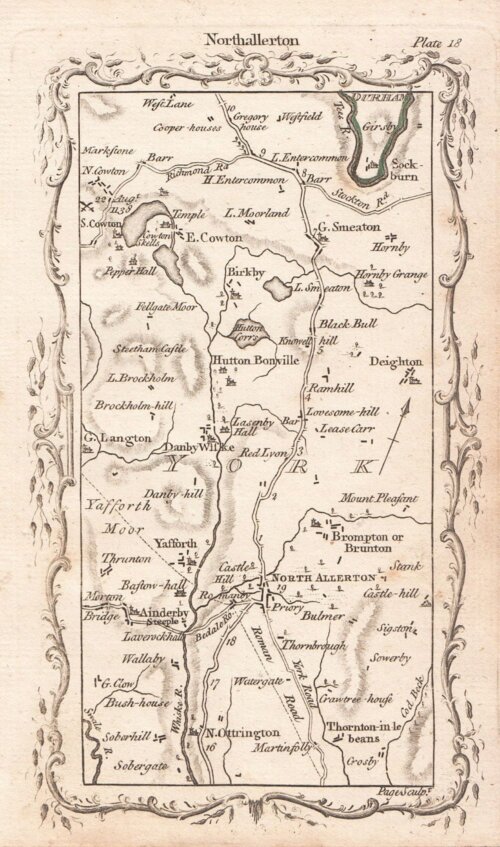 Northallerton
Plate 18
West Lane
Cooper-houses
10
Gregory house
Westfield
Tees R.
DURHAM
Girsby
Sockburn
9
L. Entercommon
Markstone
Barr
Richmond Rd
H. Entercommon
8
Barr
Stockton Rd
N. Cowton
22 Augt.
1138
S. Cowton
Temple
L. Moorland
Cowton Kells
E. Cowton
G. Smeaton
Hornby
Pepper Hall
Birkby
L. Smeaton
Hornby Grange
Fellgate Moor
Hutton Corrs
Black Bull
Knowell
hill
5
Steetham Castle
Hutton Bonville
Deighton
L. Brockholm
Ramhill
4
Brockholm-hill
Lovesome-hill
Lasenby Hall
Bar
Lease Carr
G. Langton
Danby Wiske
Red Lyon
3
Y O R K
Danby-hill
2
Yafforth Moor
Mount Pleasant
Yafforth
Brompton or Brunton
Thrunton
Castle Hill
Stank
NORTH ALLERTON
19
Bastow-hall
Romanby
Castle-hill
Morton Bridge
Ainderby Steeple
Priory
Bulmer
Laverockhall
Bedale Rd.
18
Sigston
Thornbrough
Wallaby
Roman Road
York Road
Sowerby
G. Cow
17
Watergate
Crawtree-house
Cod Beck
Bush-house
Whiske R.
Thornton-in le beans
Soberhill
N. Ottrington
16
Martinfolly
Crosby
Sobergate
Page Sculp.